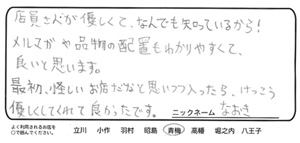 店員さんが優しくて、なんでも知っているから!
メルマガや品物の配置もわかりやすくて、
良いと思います。
最初、怪しいお店だなと思いつつ入ったら、けっこう
優しくしてくれて良かったです。 ニックネーム なおき
よく利用されるお店を
○で囲んでください。 立川 小作 羽村 昭島 青梅 高幡 堀之内 八王子